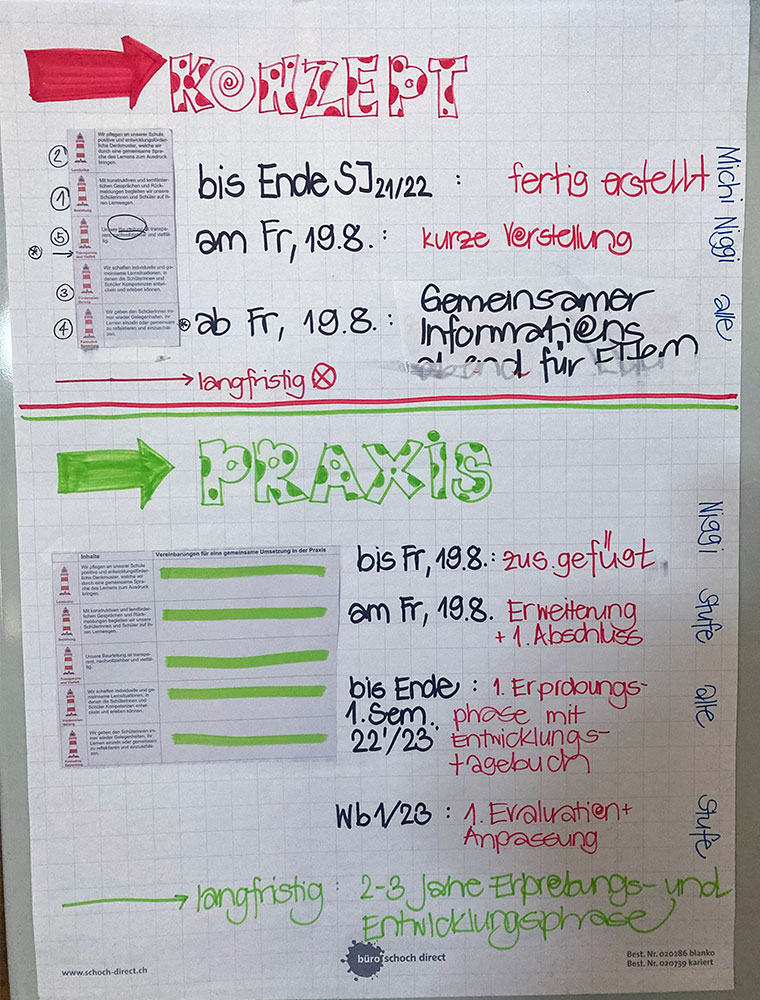 KONZEPT
2
Wir pflegen an unserer Schule
positive und entwicklungsförder-
liche Denkmuster, welche wir
durch eine gemeinsame Spra-
che des Lernens zum Ausdruck
bringen.
Lernkultur
1
Mit konstruktiven und lernförder-
lichen Gesprächen und Rück-
meldungen begleiten wir unsere
Schülerinnen und Schüler auf ih-
ren Lernwegen.
Beziehung
5
Unsere Beurteilung ist transpa-
rent, nachvollziehbar und vielfäl-
tig.
Transparenz
und Vielfalt
3
Wir schaffen individuelle und ge-
meinsame Lernsituationen, in
denen die Schülerinnen und
Schüler Kompetenzen entwi-
ckeln und erleben können.
4
Wir geben den SchülerInnen im-
mer wieder Gelegenheiten, ihr
Lernen einzeln oder gemeinsam
zu reflektieren und einzuschät-
zen.
Formative
Beurteilung
bis Ende SJ 21/22 : fertig erstellt
Michi Niggi
am Fr, 19.8. : kurze Vorstellung
alle
* ab Fr, 19.8. : Gemeinsamer
Informations
abend für Eltern
langfristig
PRAXIS
Inhalte Vereinbarungen für eine gemeinsame Umsetzung in der Praxis
Wir pflegen an unserer Schule
positive und entwicklungsförder-
liche Denkmuster, welche wir
durch eine gemeinsame Spra-
che des Lernens zum Ausdruck
bringen.
Lernkultur
Mit konstruktiven und lernförder-
lichen Gesprächen und Rück-
meldungen begleiten wir unsere
Schülerinnen und Schüler auf ih-
ren Lernwegen.
Beziehung
Unsere Beurteilung ist transpa-
rent, nachvollziehbar und vielfäl-
tig.
Transparenz
und Vielfalt
Wir schaffen individuelle und ge-
meinsame Lernsituationen, in
denen die Schülerinnen und
Schüler Kompetenzen entwi-
ckeln und erleben können.
Wir geben den Schülerinnen im-
mer wieder Gelegenheiten, ihr
Lernen einzeln oder gemeinsam
zu reflektieren und einzuschät-
zen.
Formative
Beurteilung
bis Fr, 19.8. : zus. gefügt
Niggi
am Fr, 19.8. Erweiterung
+ 1. Abschluss
Stufe
bis Ende : 1. Erprobungs-
1. Sem. phase mit
22'/23 Entwicklungs-
tagebuch
alle
Wb1/23 : 1. Evaluation+
Anpassung
Stufe
langfristig : 2-3 Jahre Erprobungs- und
Entwicklungsphase
www.schoch-direct.ch
büro schoch direct
Best. Nr. 020286 blanko
Best. Nr. 020739 kariert